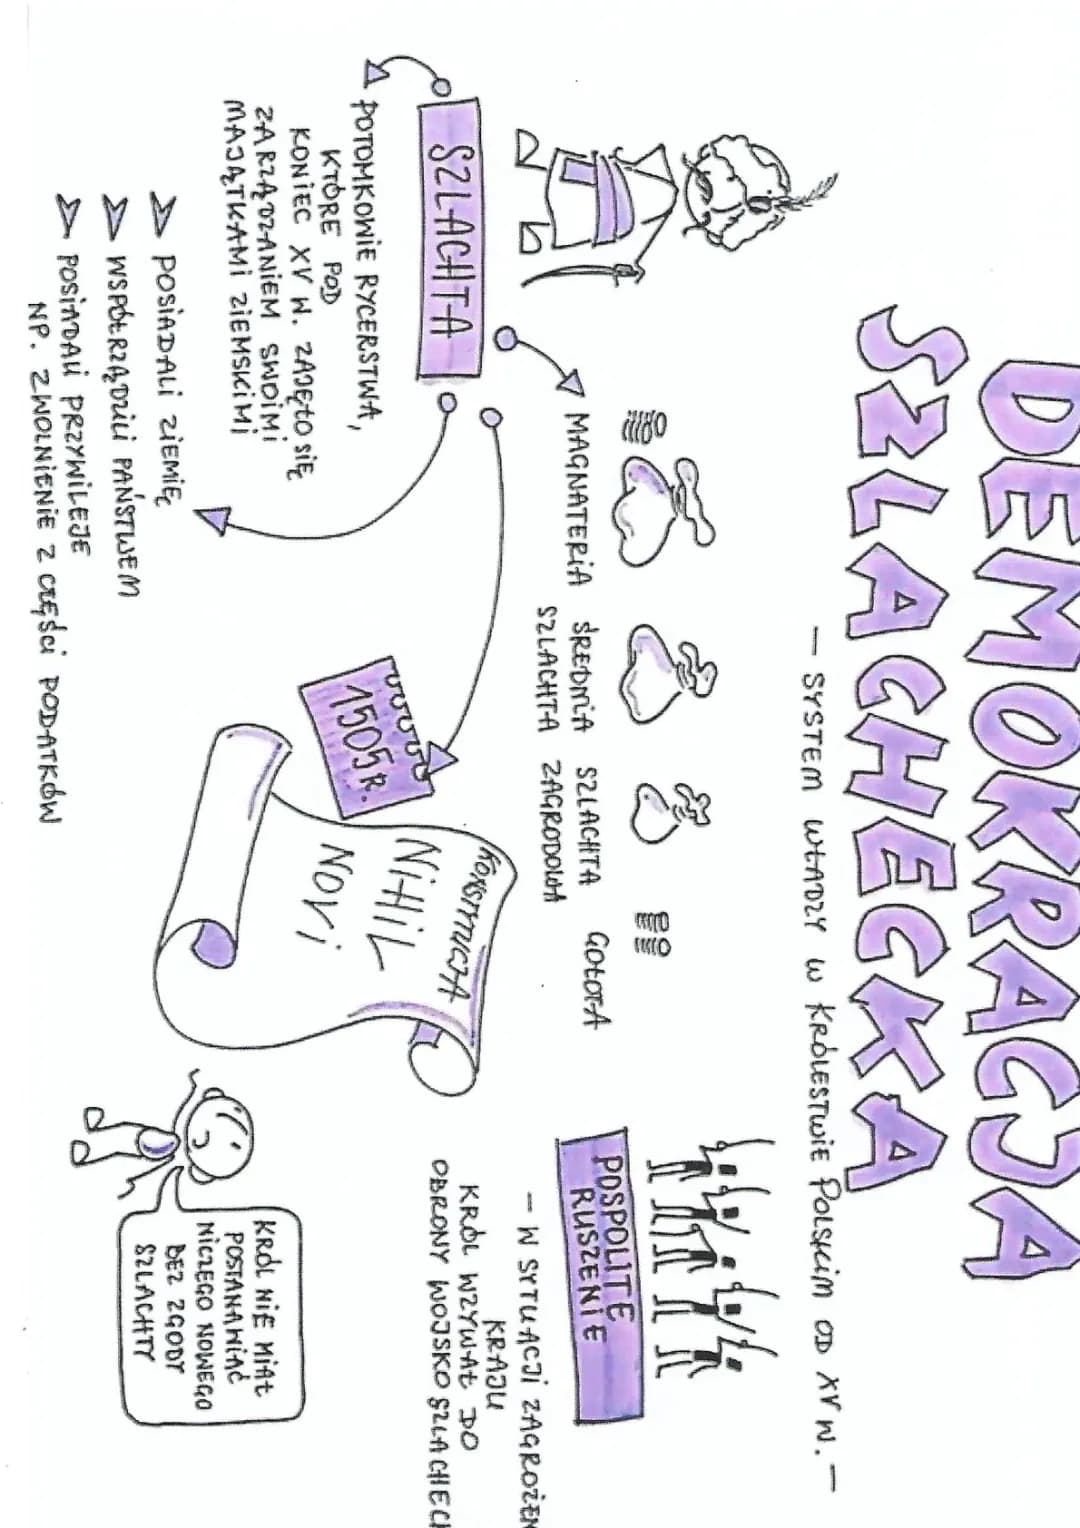 DEMOKRACJA
SZLACHECKA
- SYSTEM WŁADZY W KRÓLESTWIE POLSKIM OD XV W. -
SZLACHTA
POTOMKOWIE RYCERSTWA,
KTÓRE POD
KONIEC XV W. ZAJĘTO SIĘ
ZARZĄDZANIEM SWOIMI
MAJĄTKAMI ZIEMSKIMI
MAGNATERIA
ŚREDNIA
SZLACHTA
SZLACHTA
ZAGRODOWA
GOŁOTA
POSIADALI ZIEMIĘ
WSPÓŁRZĄDZILI PAŃSTWEM
POSIADALI PRZYWILEJE
NP. ZWOLNIENIE Z CZĘŚCI PODATKÓW
1505 R.
KONSTYTUCJA
NIHIL
NOVI
POSPOLITE
RUSZENIE
- W SYTUACJI ZAGROŻEN
KRAJU
KRÓL WZYWAŁ DO
OBRONY WOJSKO SZLACHECK
KRÓL NIE MIAŁ
POSTANAWIAĆ
NICZEGO NOWEGO
BEZ ZGODY
SZLACHTY